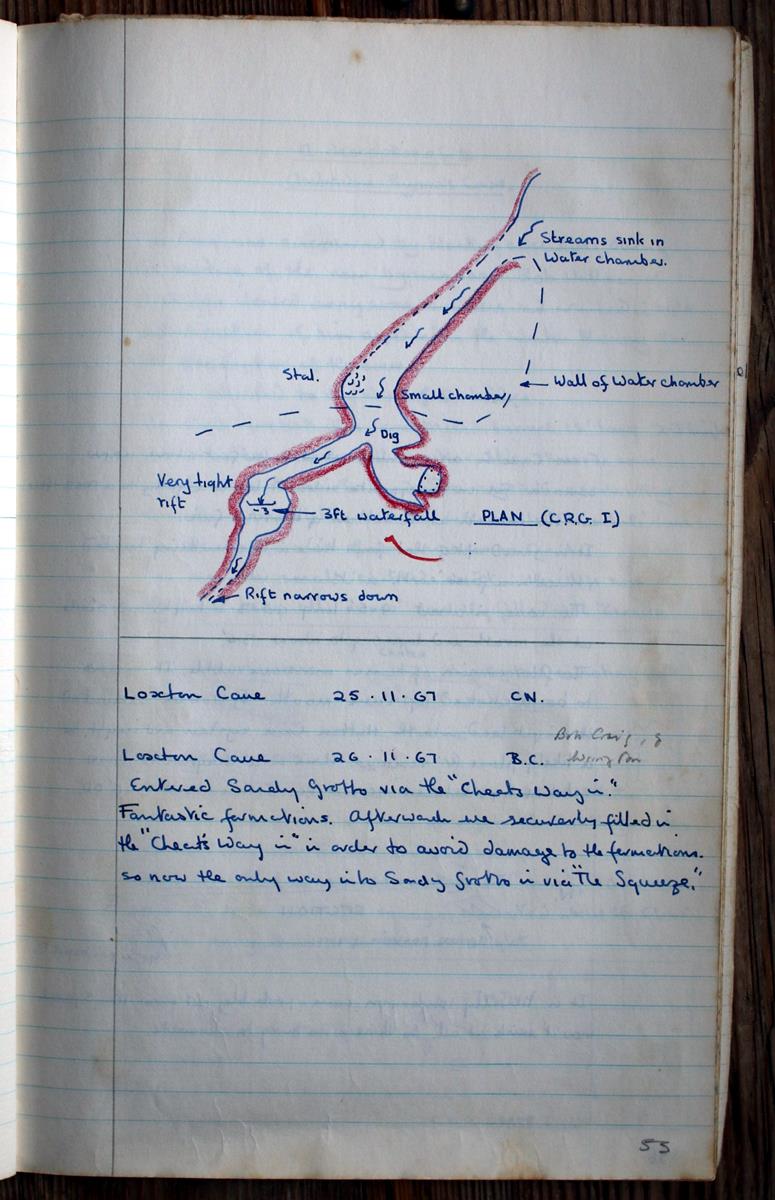 Streams sink in
Water chamber.
Stal.
Small chamber
Wall of Water chamber
Dig
Very tight
rift
-3
3ft waterfall
PLAN (C.R.G. I)
Rift narrows down
Loxton Cave 25.11.67 C.N.
Bob Craig, &
Loxton Cave 26.11.67 B.C.
Entered Sandy Grotto via the "Cheats Way in."
Fantastic formations. Afterwards we securely filled in
the "Cheat's Way in" in order to avoid damage to the formations.
so now the only way into Sandy Grotto is via "The Squeeze."
55